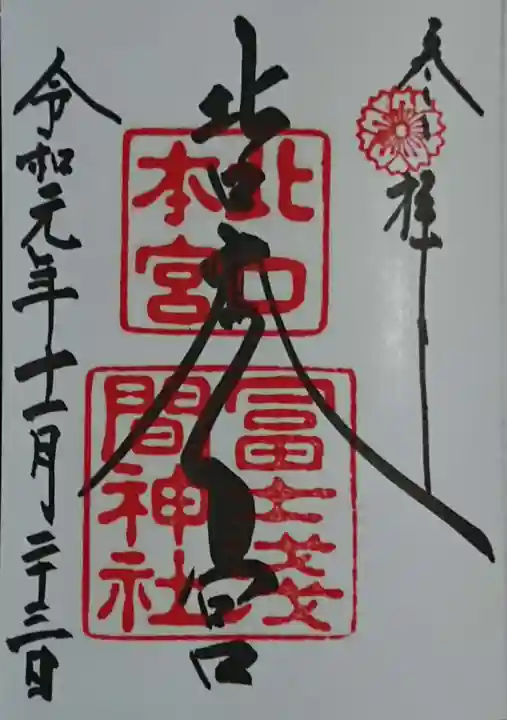 奉拝
北口本宮
北口本宮
冨士浅間神社
令和元年十一月二十三日